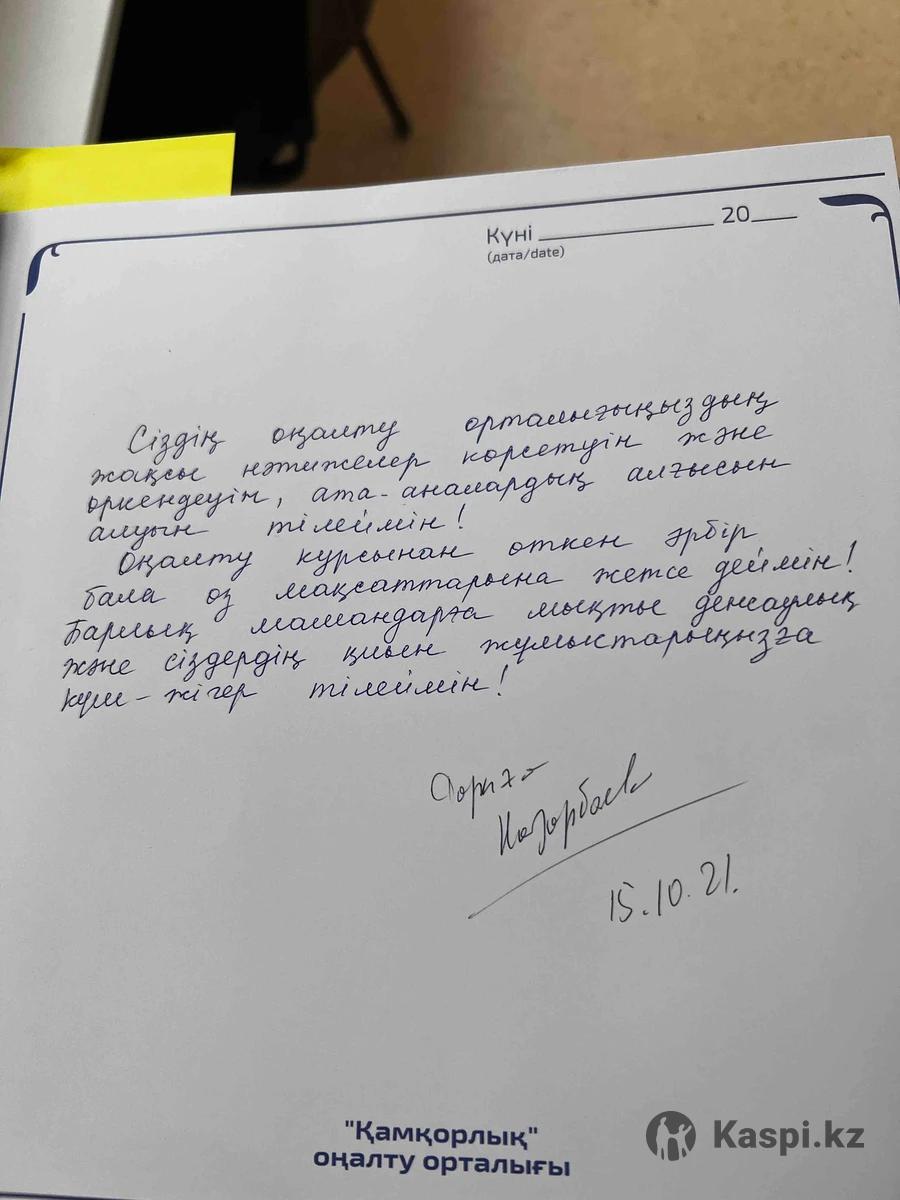 Күні ____________ 20___
(дата/date)
Сіздің оңалту орталығыңыздың
жақсы нәтижелер көрсетуін және
өркендеуін, ата-аналардың алғысын
алуын тілеймін!
Оңалту курсынан өткен әрбір
бала өз мақсаттарына жетсе деймін!
Барлық мамандарға мықты денсаулық
және сіздердің қиын жұмыстарыңызға
күш-жігер тілеймін!
Дариға
Назарбаева
15.10.21.
"Қамқорлық"
оңалту орталығы
Kaspi.kz